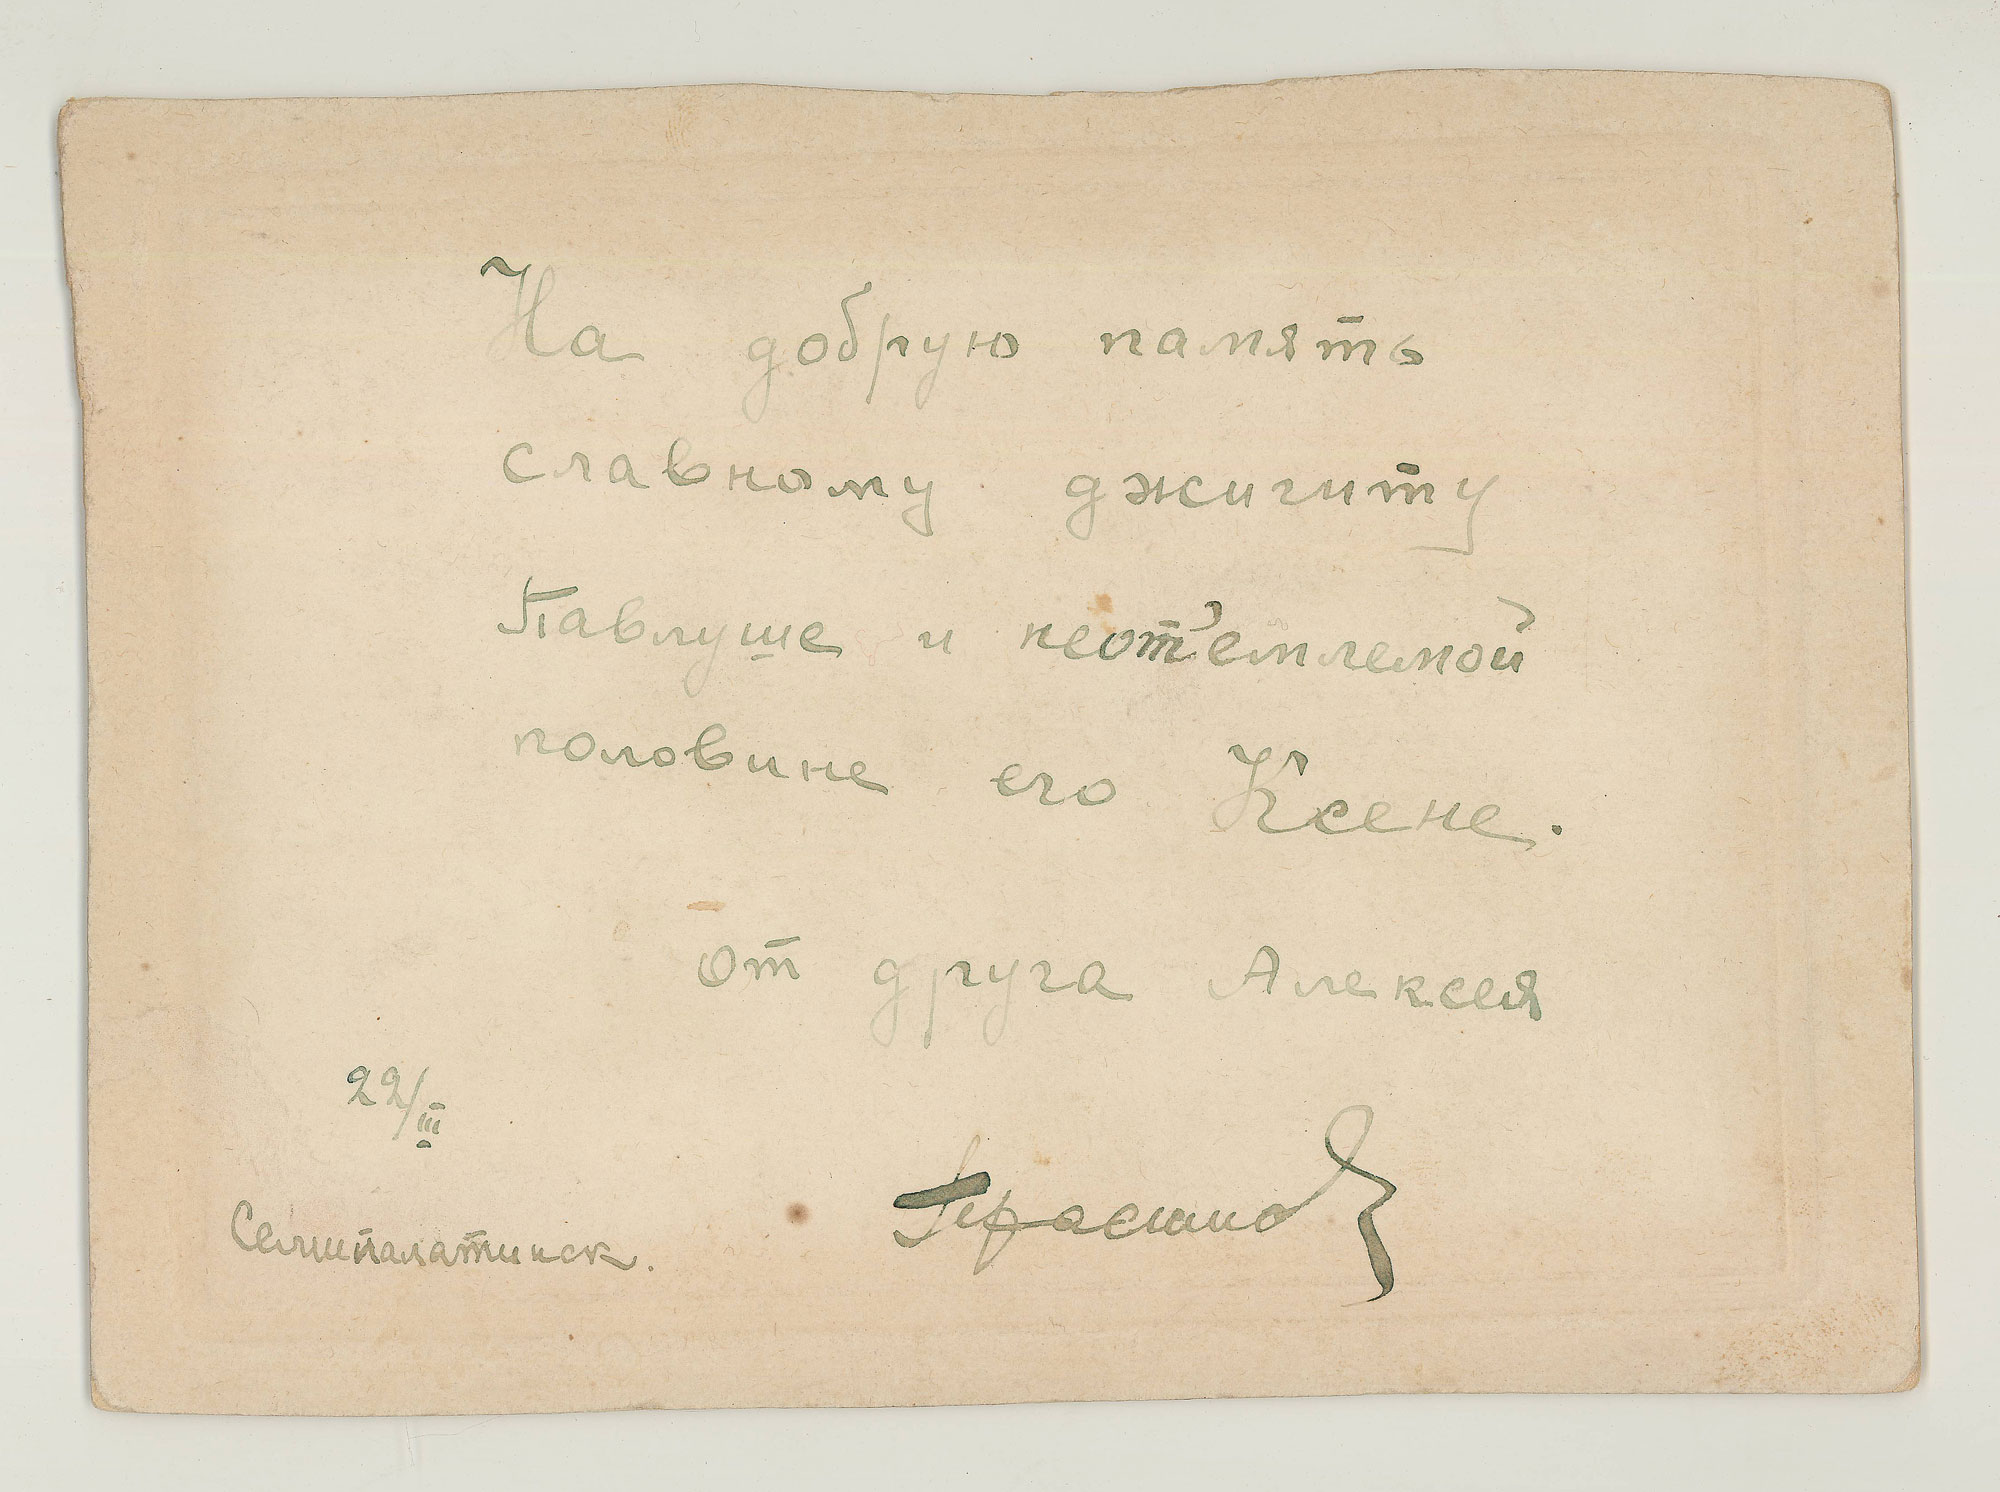 На добрую память
славному джигиту
Павлуше и неот'емлемой
половине его Ксене.
От друга Алексея
22/III
Герасимов
Семипалатинск.